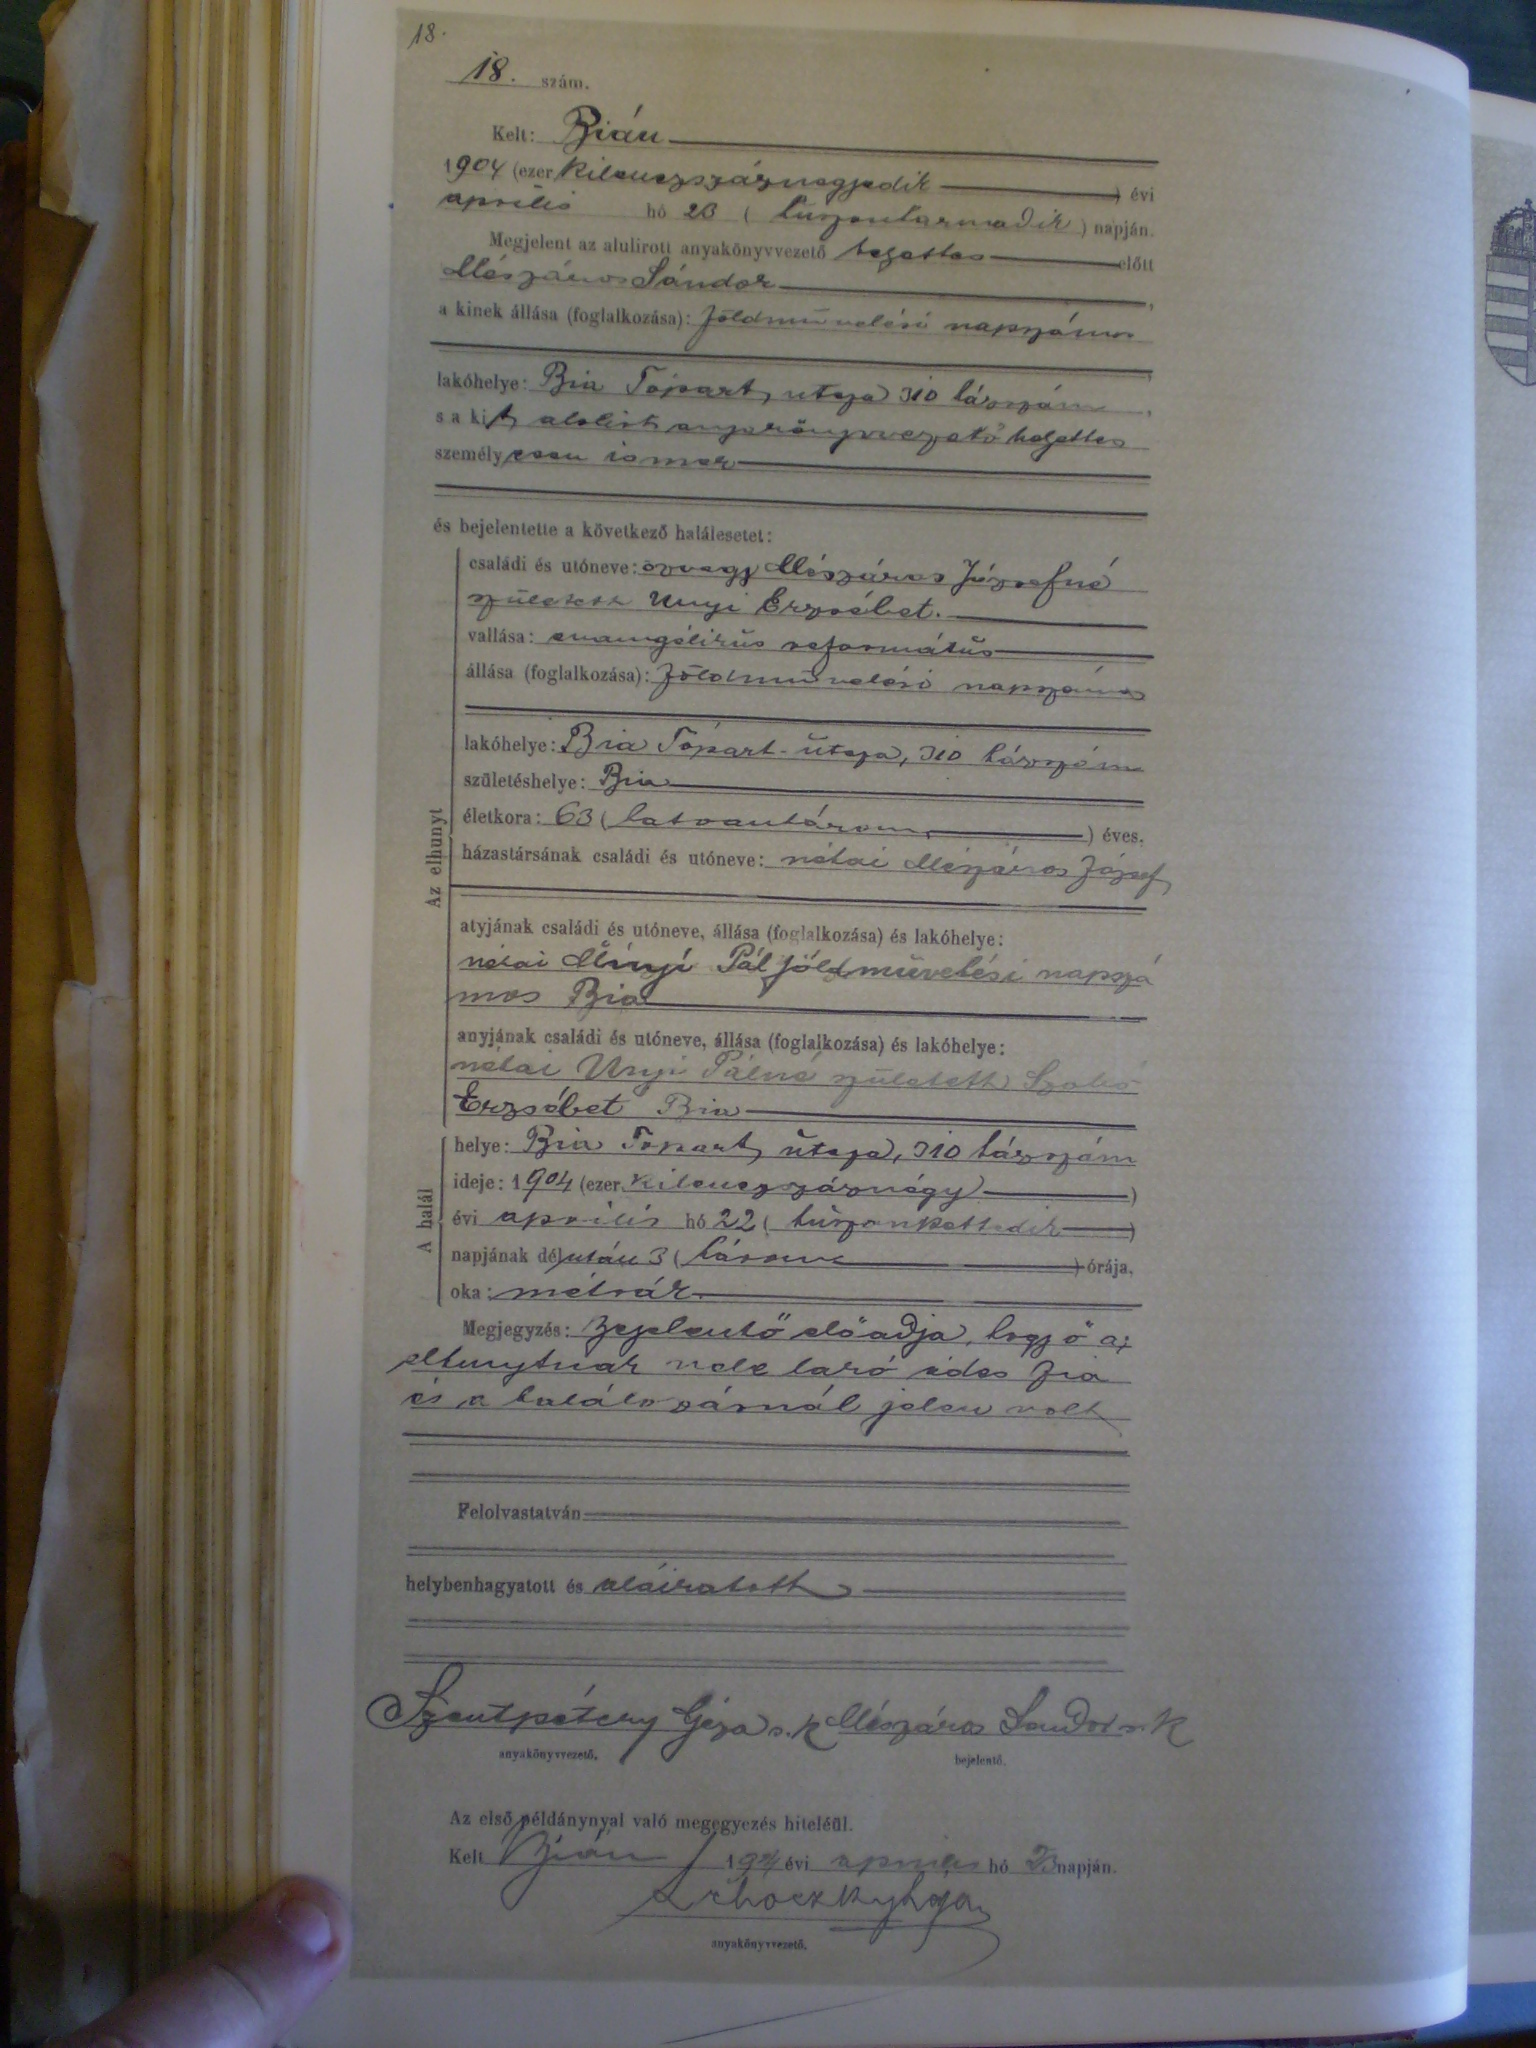 18.
18. szám.
Kelt: Bián
1904 (ezer kilenczszáznegyedik) évi
április hó 23 (huszonharmadik) napján.
Megjelent az alulirott anyakönyvvezető helyettes előtt
Mészáros Sándor,
a kinek állása (foglalkozása): földművelési napszámos
lakóhelye: Bia Tópart utcza 310 házszám,
s a kit alolirt anyakönyvvezető helyettes
személyesen ismer
és bejelentette a következő halálesetet:
Az elhunyt
családi és utóneve: özvegy Mészáros Józsefné
született Unyi Erzsébet.
vallása: evangélikus református
állása (foglalkozása): földművelési napszámos
lakóhelye: Bia Tópart-utcza, 310 házszám
születéshelye: Bia
életkora: 63 (hatvanhárom) éves.
házastársának családi és utóneve: néhai Mészáros József
atyjának családi és utóneve, állása (foglalkozása) és lakóhelye:
néhai Pál földművelési napszá
mos Bia
anyjának családi és utóneve, állása (foglalkozása) és lakóhelye:
néhai Unyi Pálné született Szabó
Erzsébet Bia
A halál
helye: Bia Tópart utcza, 310 házszám
ideje: 1904 (ezer kilenczszáznégy)
évi április hó 22 (huszonkettedik)
napjának délután 3 (három) órája.
oka: méhrák.
Megjegyzés: Bejelentő előadja, hogy ő az
elhunytnak vele lakó édes fia
és a halálozásnál jelen volt
Felolvastatván
helybenhagyatott és aláiratott
Szentpétery Géza s. k Mészáros Sándor s. k
anyakönyvvezető. bejelentő.
Az első példánynyal való megegyezés hiteléül.
Kelt Bián 1904 évi április hó 23 napján.
anyakönyvvezető.